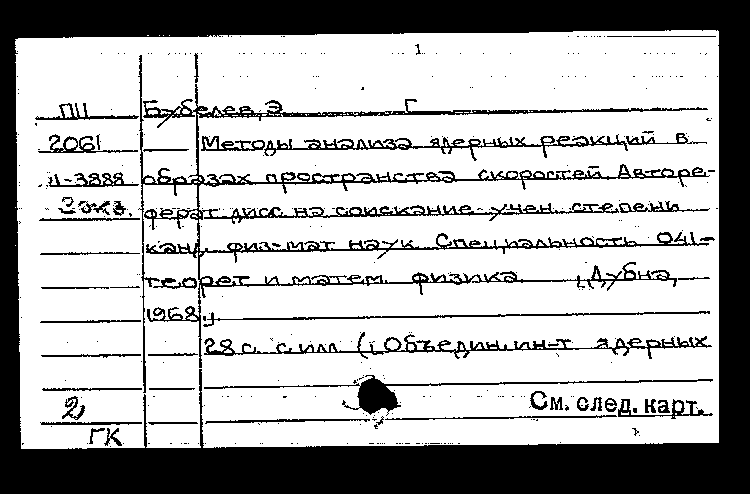 1
ПII Бубелев, Э. Г
2061 Методы анализа ядерных реакций в
4-3888 образах пространства скоростей. Авторе-
2 экз. ферат дисс на соискание учен. степени
канд. физ-мат наук Специальность 041-
теорет и матем. физика. [Дубна,
1968].
28 с. с илл ([Объедин. ин-т ядерных
2)
См. след. карт.
ГК